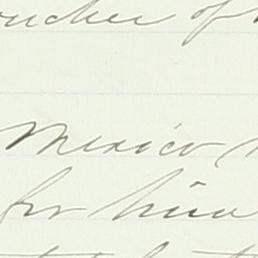 voucher of
Mexico
for him